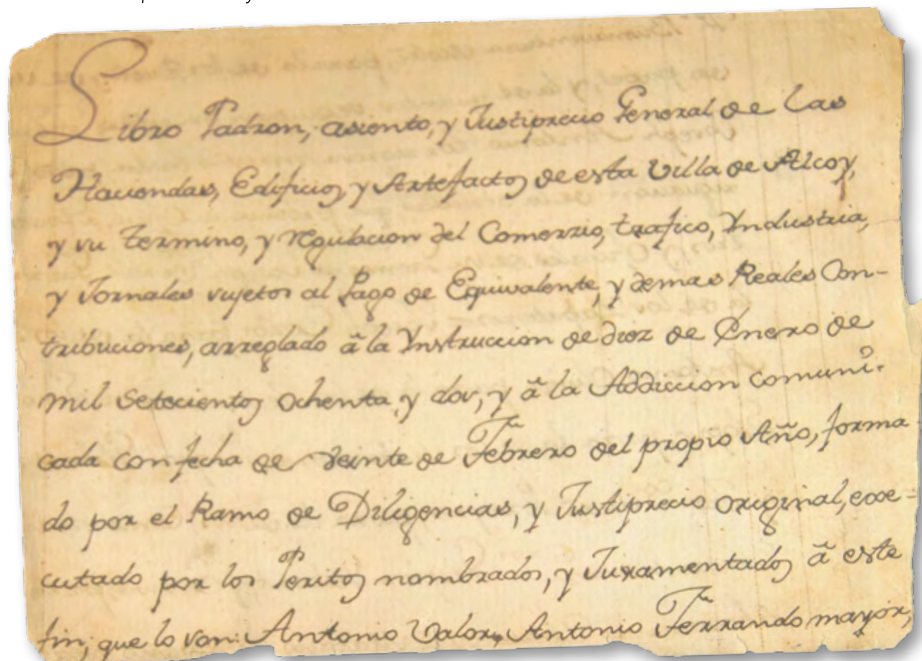 Libro Padron, asiento, y Justiprecio General de las
Haciendas, Edificios, y Artefactos de esta Villa de Alcoy,
y su termino, y regulacion del Comerzio, trafico, Yndustria,
y Jornales sujetos al Pago de Equivalente, y demas Reales Con-
tribuciones, arreglado â la Ynstruccion de diez de Enero de
mil setecientos ochenta, y dos, y â la Addiccion comuni-
cada con fecha de veinte de Febrero del propio Año, forma
do por el Ramo de Diligencias, y Justiprecio original, exe-
cutado por los Peritos nombrados, y Juramentados â este
fin, que lo son: Antonio Valor, Antonio Ferrando mayor,